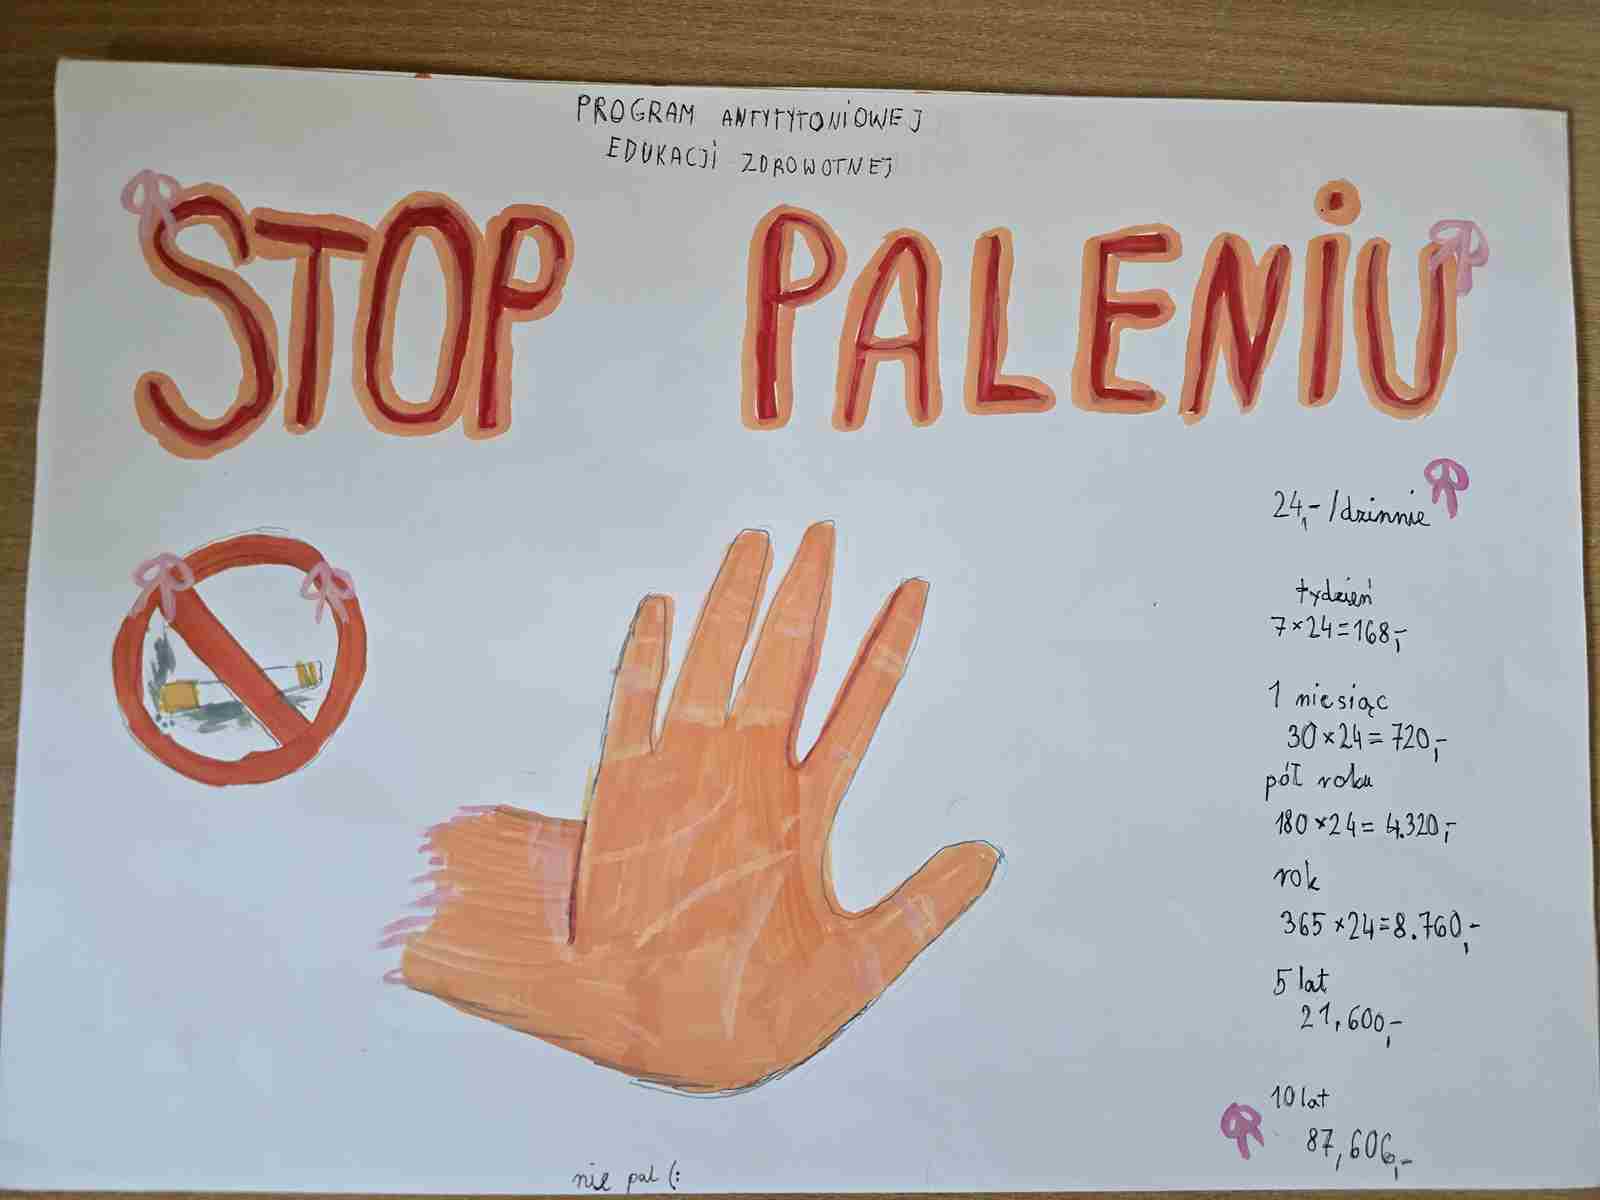 PROGRAM ANTYTYTONIOWEJ
EDUKACJI ZDROWOTNEJ
STOP PALENIU
24,-/dzinnie
tydzień
7×24=168,-
1 miesiąc
30×24=720,-
pół roku
180×24=4.320,-
rok
365×24=8.760,-
5 lat
21,600,-
10 lat
87,606,-
nie pal (: